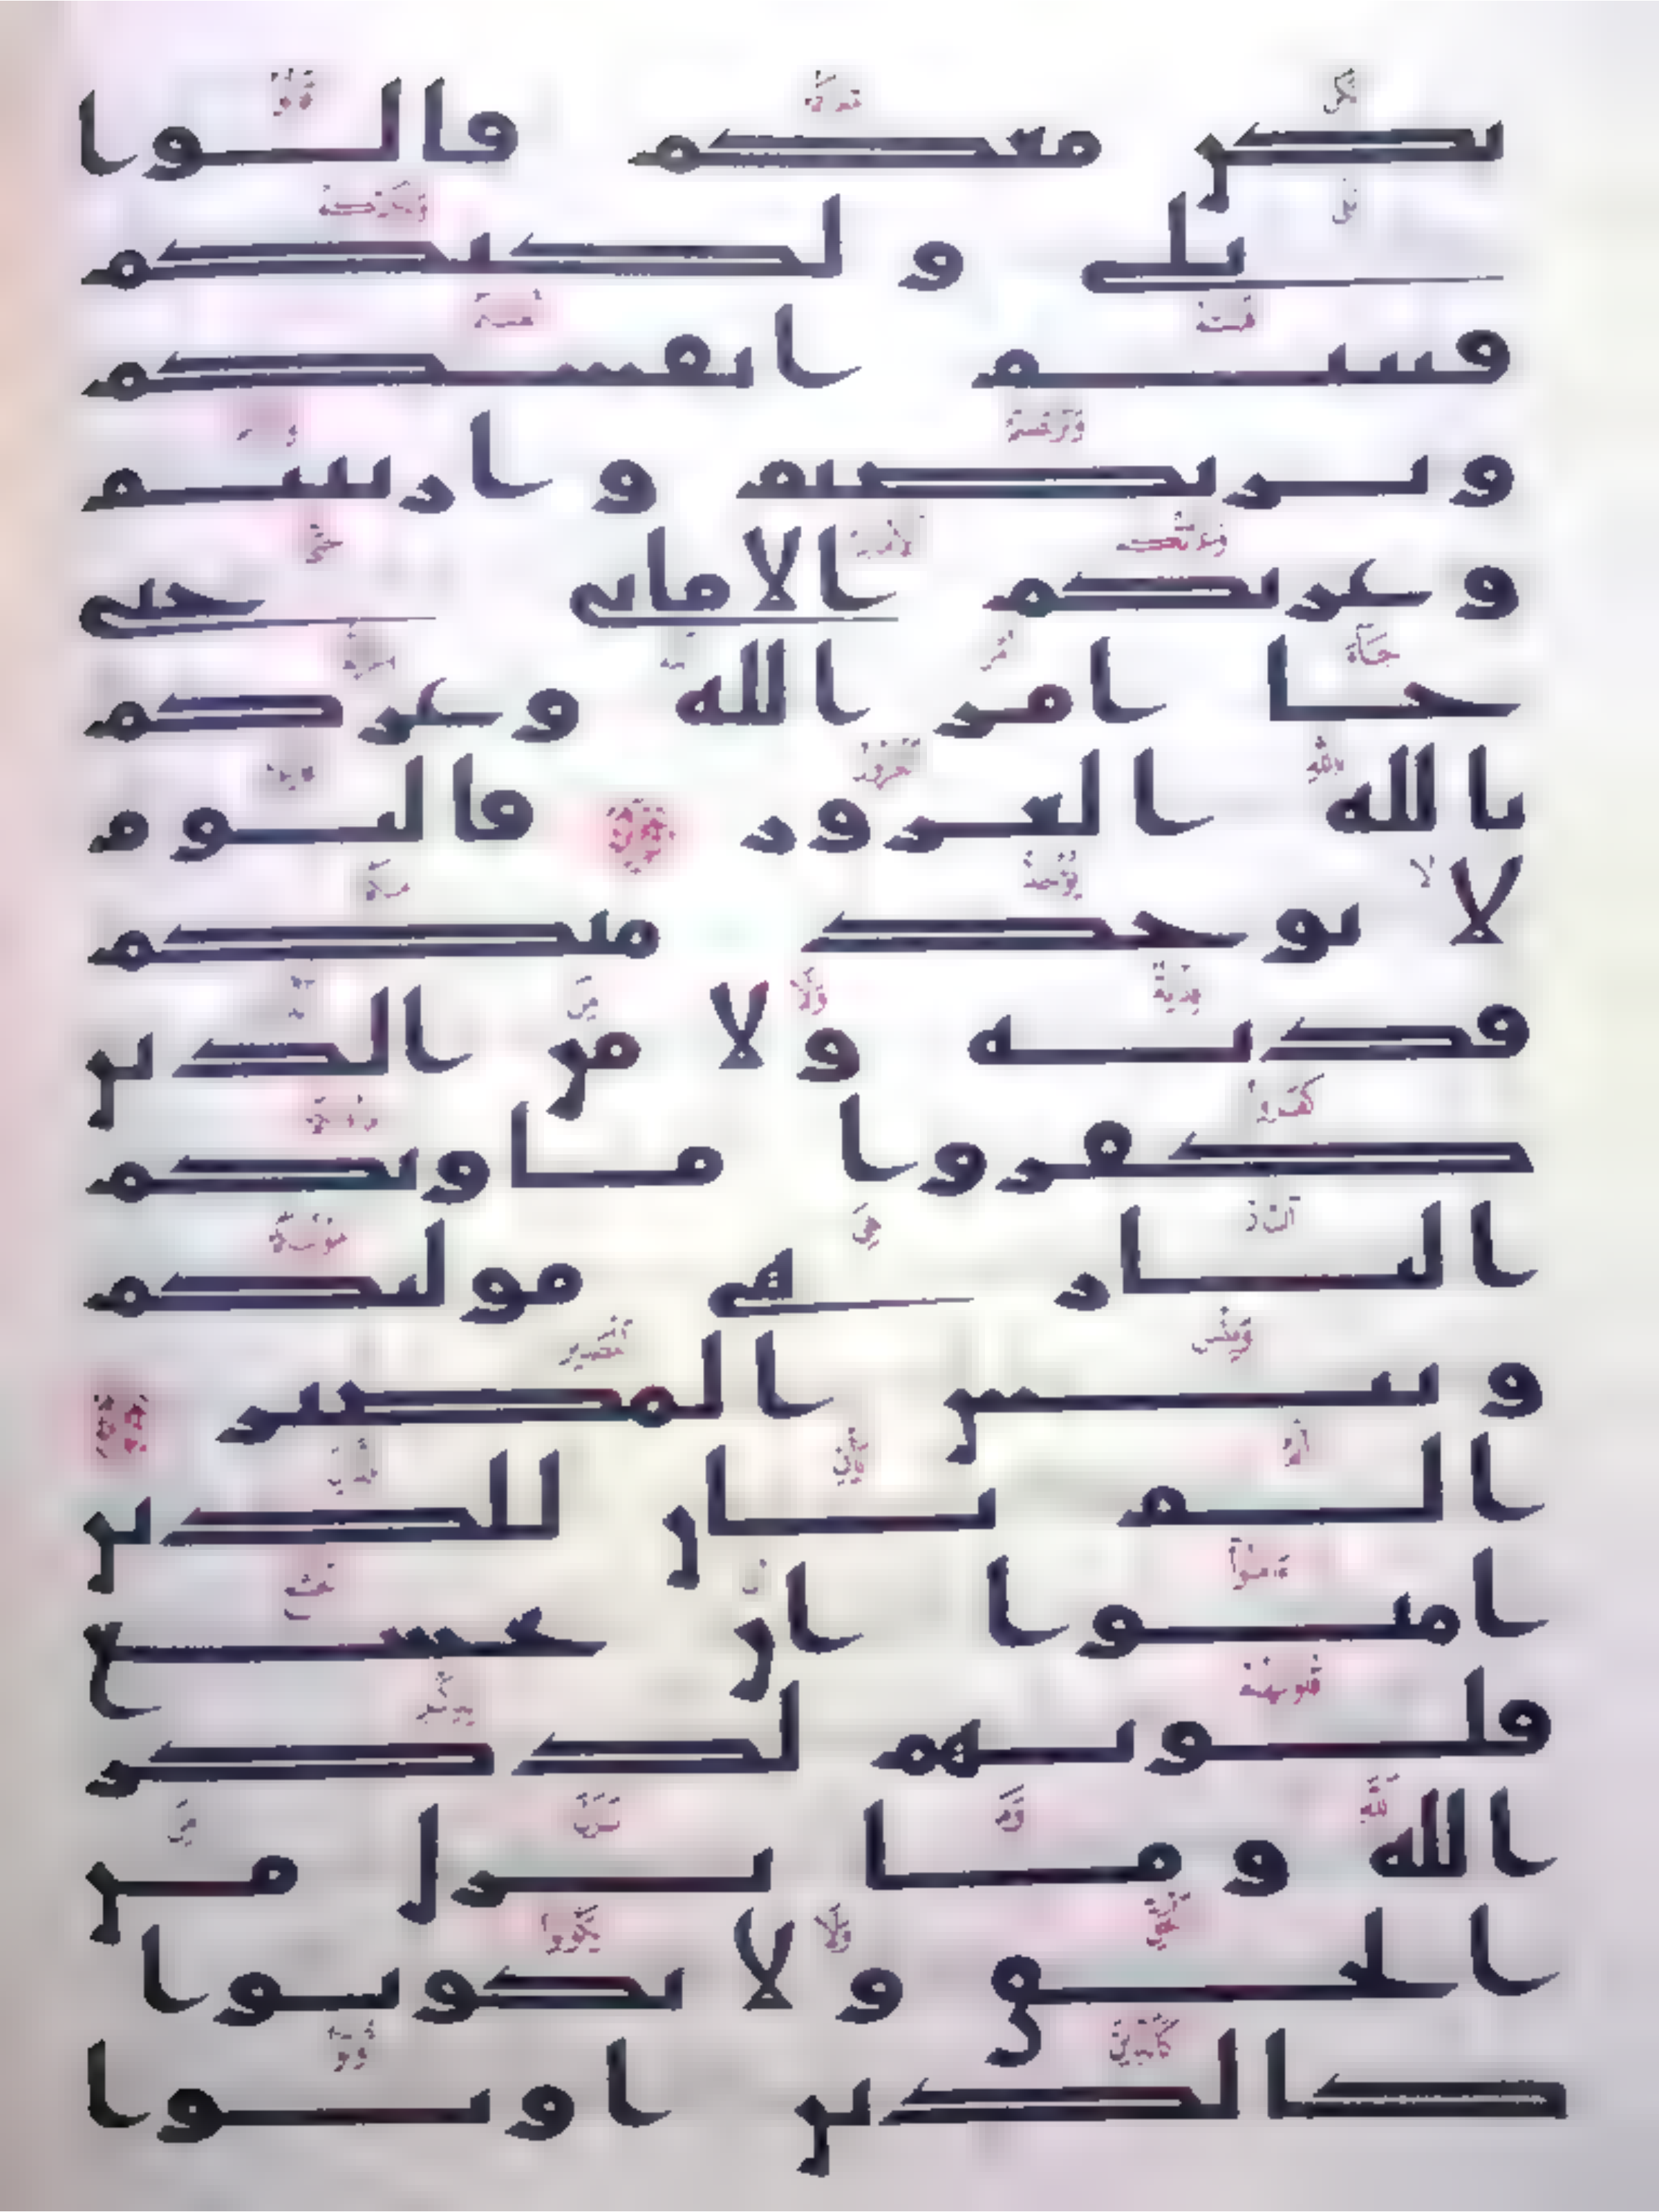 نكن معكم قالوا
بلى ولكنكم
فتنتم انفسكم
وتربصتم وارتبتم
وغرتكم الامانى حتى
جا امر الله وغركم
بالله الغرور فاليوم
لا يوخذ منكم
فدية ولا من الذين
كفروا ماويكم
النار هى موليكم
وبيس المصير
الم يان للذين
امنوا ان تخشع
قلوبهم لذكر
الله وما نزل من
الحق ولا يكونوا
كالذين اوتوا